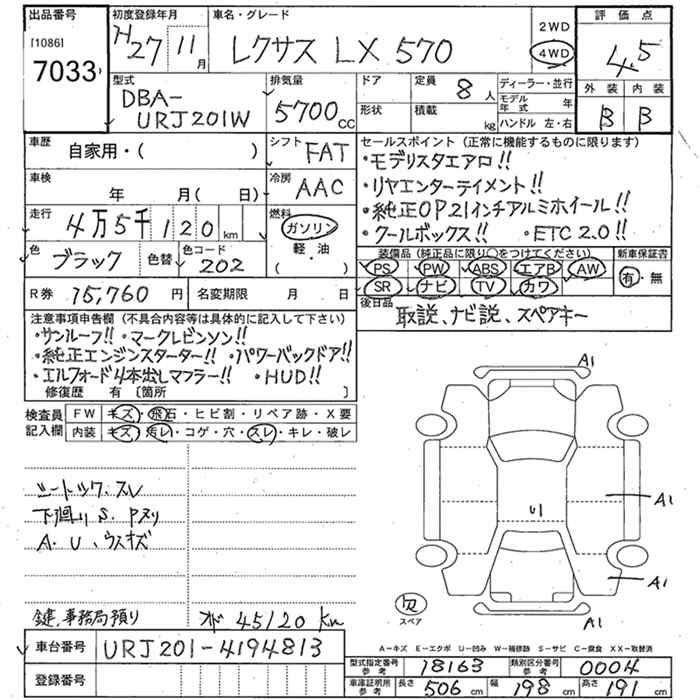 出品番号
[1086]
7033
初度登録年月
H27 11月
車名・グレード
レクサス LX 570
2WD
4WD
評価点
4.5
外装 内装
B B
型式
DBA-
URJ201W
排気量
5700cc
ドア
形状
定員 8人
積載 kg
ディーラー・並行
モデル年式 年
ハンドル 左・右
車歴
自家用・( )
シフト
FAT
車検
年 月( 日)
冷房
AAC
走行
4万5千120km
燃料
ガソリン
軽・油
( )
色
ブラック
色替
色コード
202
R券 15,760円
名変期限 月 日
セールスポイント (正常に機能するものに限ります)
・モデリスタエアロ!!
・リヤエンターテイメント!!
・純正OP21インチアルミホイール!!
・クールボックス!! ・ETC2.0!!
装備品(純正品に限り○をつけてください)
新車保証書
PS PW ABS エアB AW
SR ナビ TV カワ
有・無
後日品
取説、ナビ説、スペアキー
注意事項申告欄 (不具合内容等は具体的に記入して下さい)
・サンルーフ!! ・マークレビンソン!!
・純正エンジンスターター!! ・パワーバックドア!!
・エルフォード4本出しマフラー!! ・HUD!!
修復歴 有 〔箇所 〕
検査員記入欄
FW キズ・飛石・ヒビ割・リペア跡・X要
内装 キズ・汚レ・コゲ・穴・スレ・キレ・破レ
シートシワ、スレ
下廻り S. Pヌリ
A. U、ウスキズ
鍵、事務局預り
45120 km
A1
A1
U1
A1
A1
スペア
A-キズ E-エクボ U-凹み W-補修跡 S-サビ C-腐食 XX-取替済
車台番号 URJ201-4194813
登録番号
型式指定番号 参考 18163
類別区分番号 参考 0004
車庫証明用 参考 長さ 506cm 幅 198cm 高さ 191cm